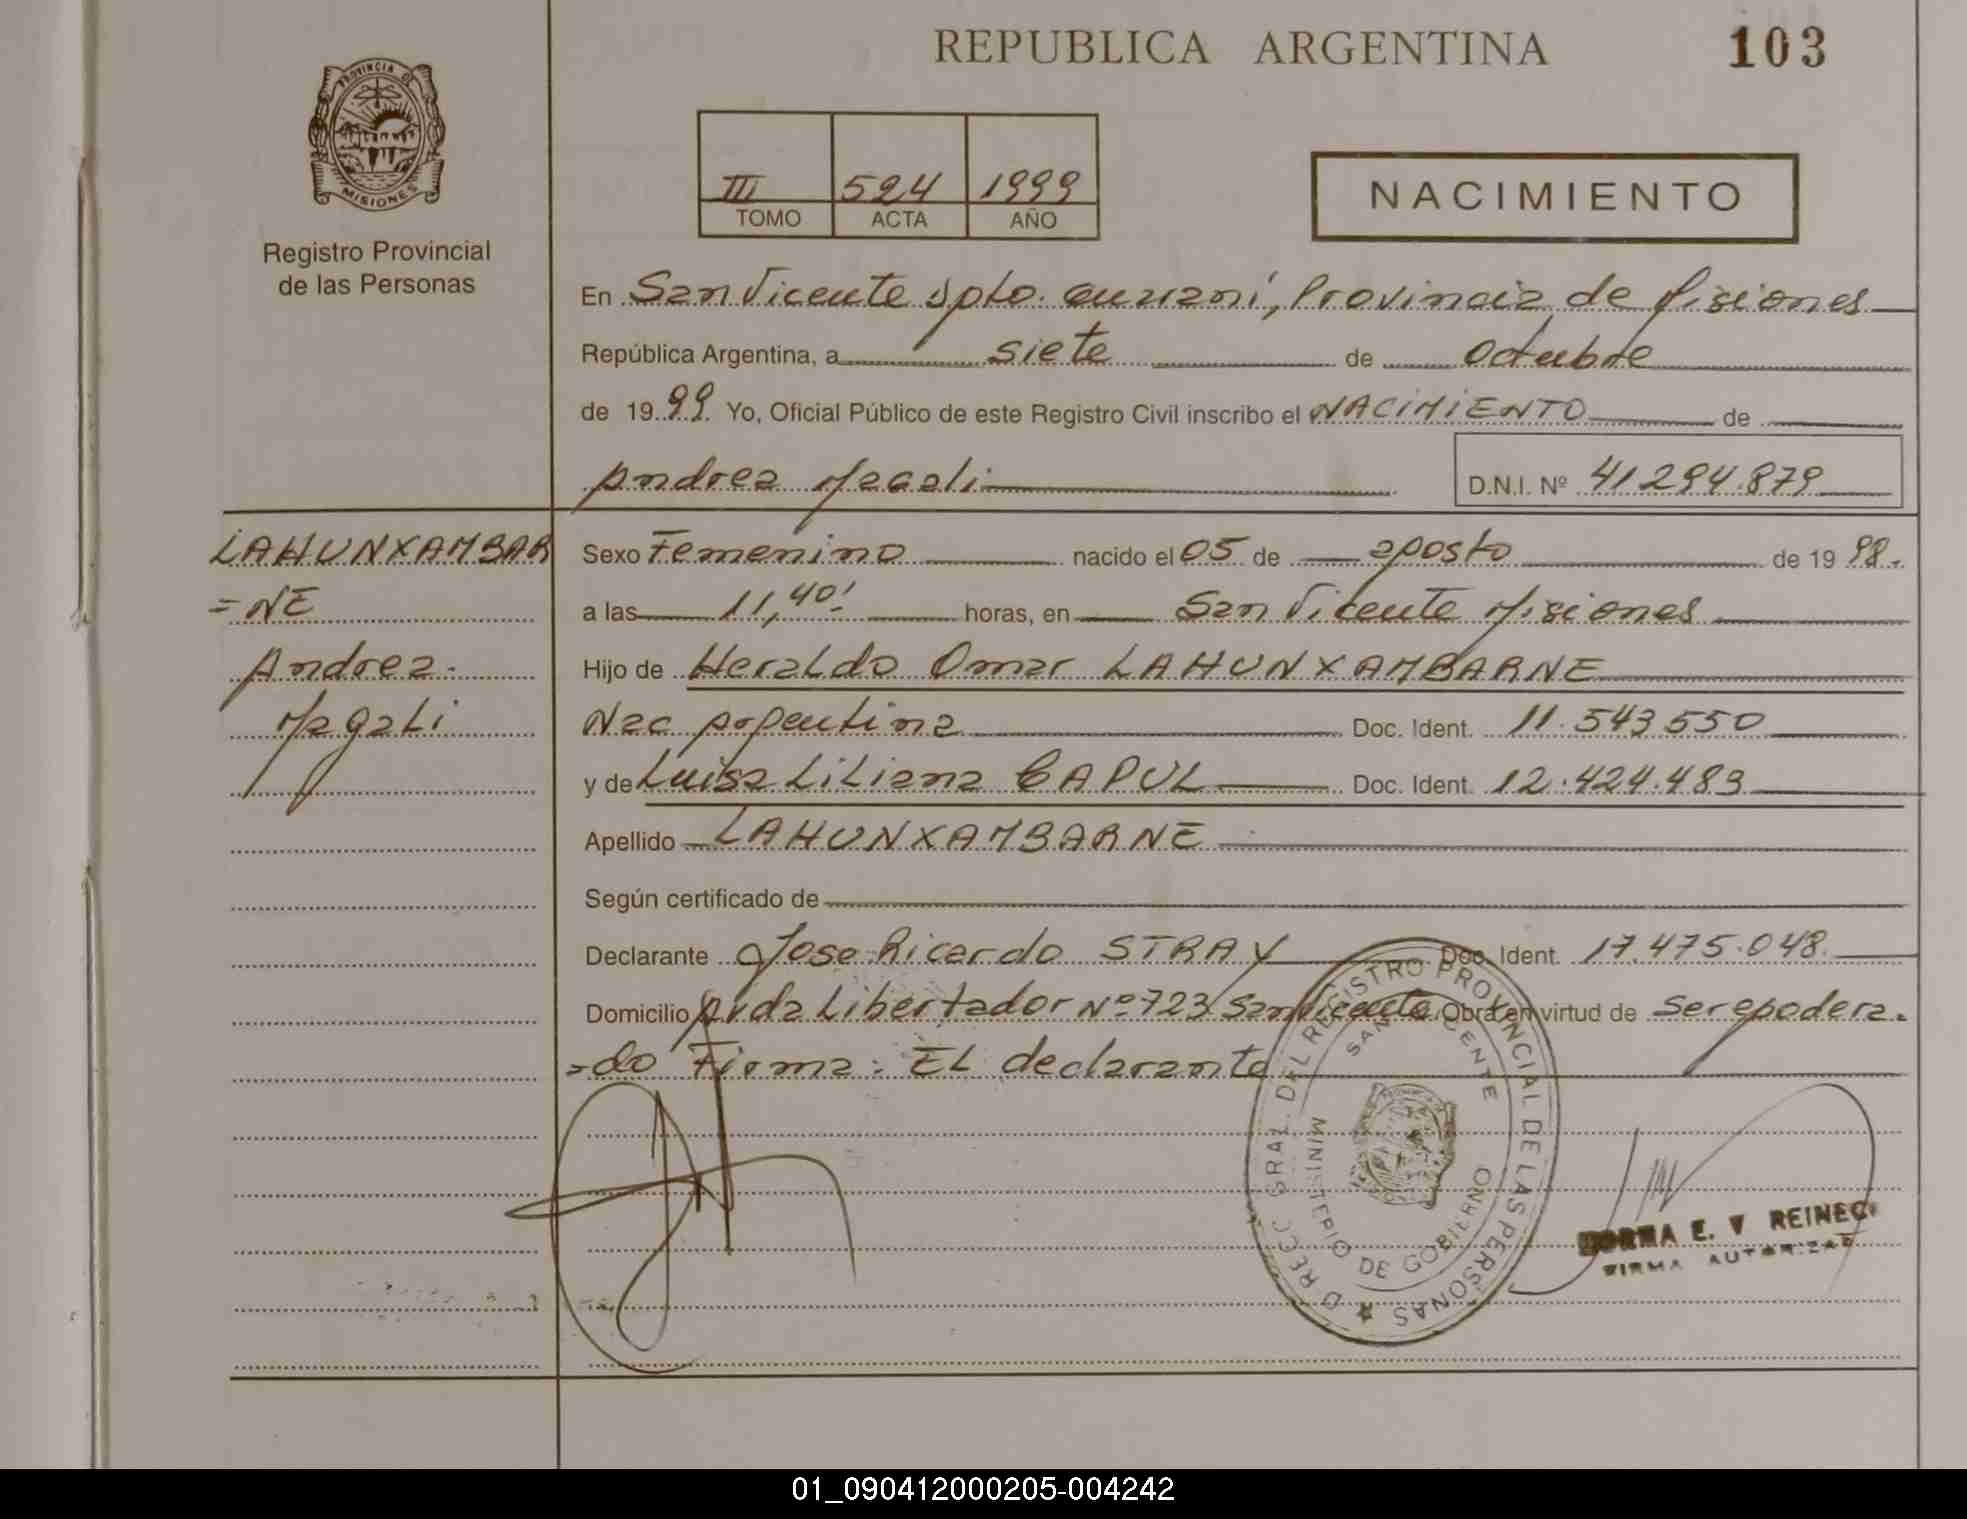 REPUBLICA ARGENTINA
103
PROVINCIA DE
MISIONES
Registro Provincial
de las Personas
III 524 1999
TOMO ACTA AÑO
NACIMIENTO
En San Vicente Dpto. Guaraní, Provincia de Misiones
República Argentina, a siete de octubre
de 1999 Yo, Oficial Público de este Registro Civil inscribo el NACIMIENTO de
Andrea Magali D.N.I. Nº 41.294.879
LAHUNXAMBAR
=NE
Andrea.
Magali
Sexo Femenino nacido el 05 de agosto de 1998.
a las 11,40' horas, en San Vicente Misiones
Hijo de Heraldo Omar LAHUNXAMBARNE
Nac Argentina Doc. Ident. 11.543.550
y de Luisa Liliana CAPUL Doc. Ident. 12.424.483
Apellido LAHUNXAMBARNE
Según certificado de
Declarante Jose Ricardo STRAY Doc. Ident. 17.475.048.
Domicilio Avda Libertador Nº 723 San Vicente Obra en virtud de ser epodera.
=do Firma: EL declarante
D RECC GRAL. DEL REGISTRO PROVINCIAL DE LAS PERSONAS
SAN VICENTE
MINISTERIO DE GOBIERNO
NORMA E. V REINEC
FIRMA AUTORIZAD
01_090412000205-004242